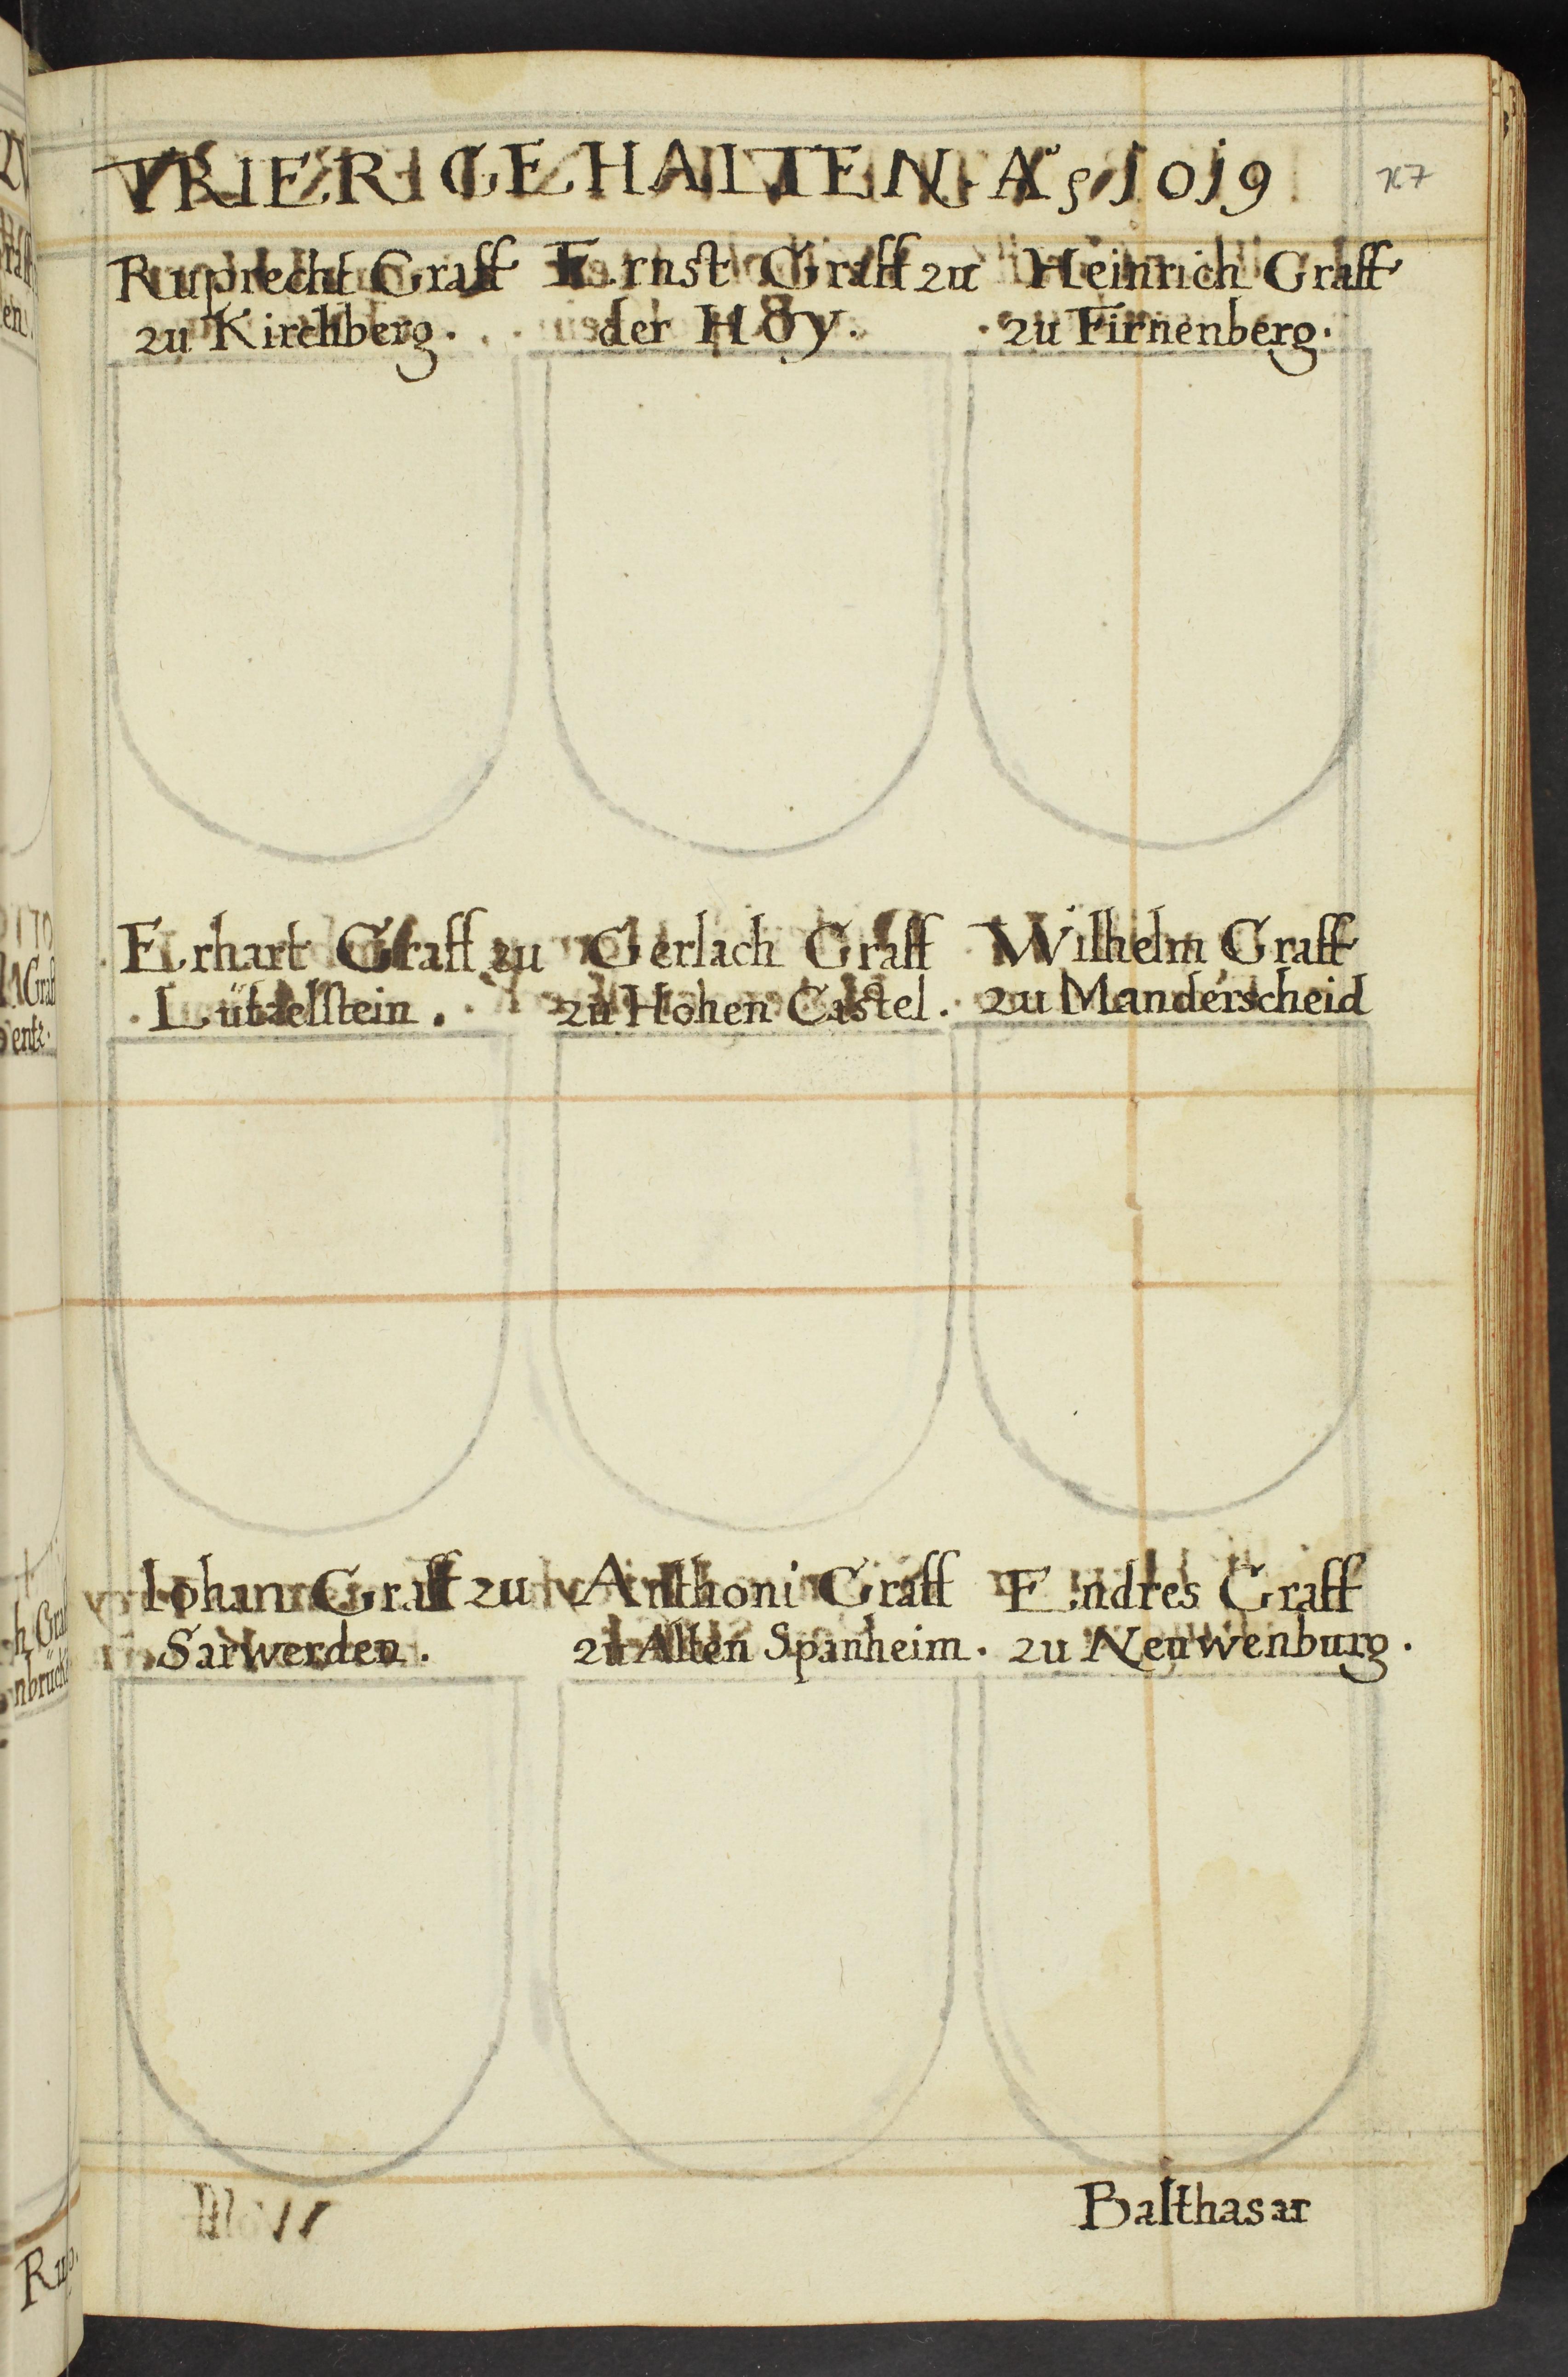 TRIER GEHALTEN A° 1019
Ruprecht Graff
zu Kirchberg.
Ernst Graff zu
der Hoÿ.
Heinrich Graff
zu Firnenberg.
Erhart Graff zu
Lützelstein.
Gerlach Graff
zu Hohen Castel.
Wilhelm Graff
zu Manderscheid
Iohan Graff zu
Sarwerden.
Anthoni Graff
zu Alten Spanheim.
Endres Graff
zu Neuwenburg.
Balthasar